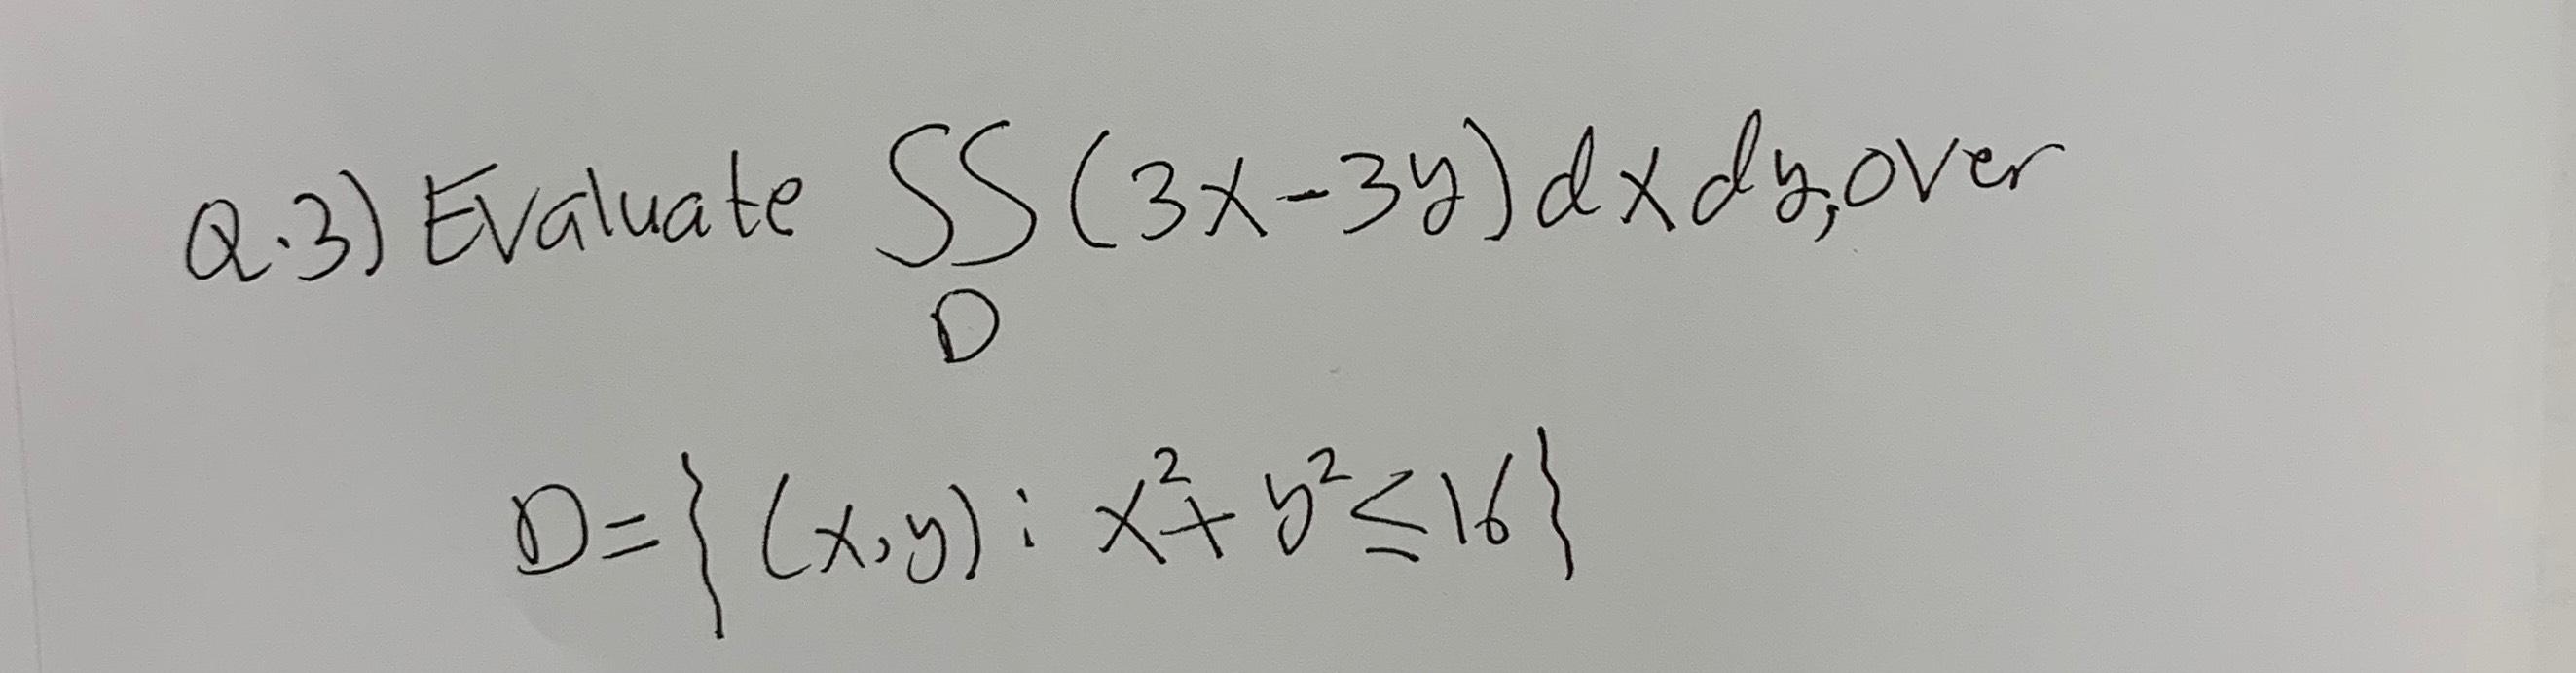 Q.3) Evaluate ∫∫ (3x-3y) dx dy, over
D
D={ (x,y) : x²+ y² ≤ 16}